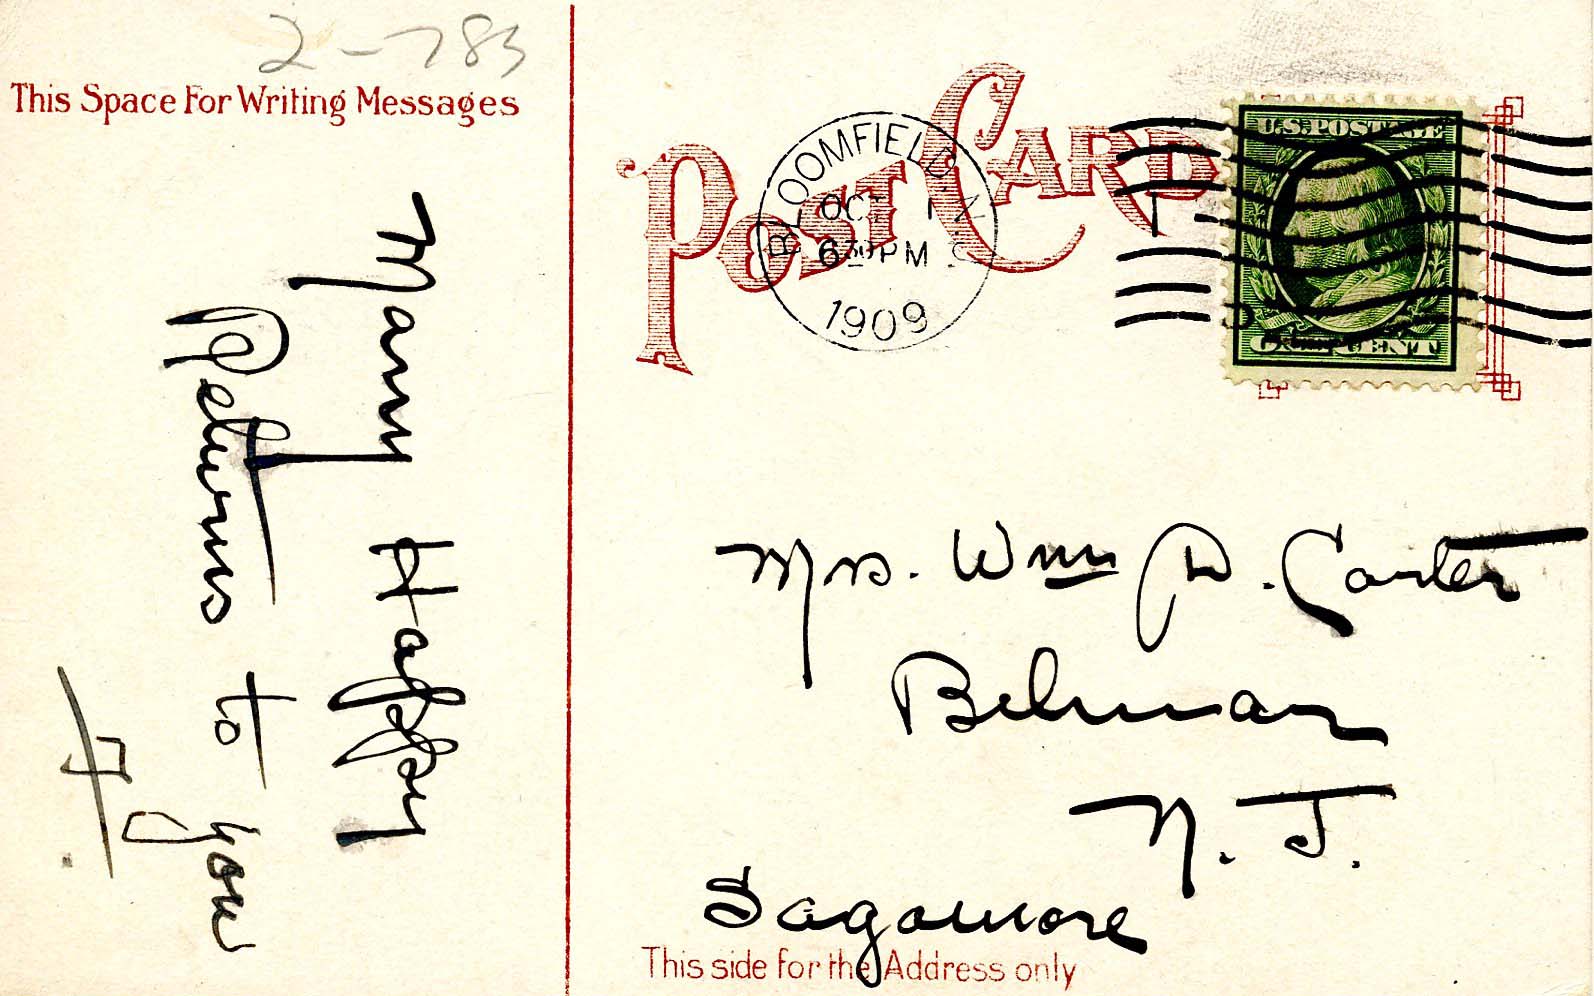 2-783
This Space For Writing Messages
Many Happy
Returns to you
F.
POST CARD
BLOOMFIELD, N.J.
OCT 1
630 PM
1909
U.S. POSTAGE
CENT
Mrs. Wm D. Carter
Belmar
N. J.
Sagamore
This side for the Address only